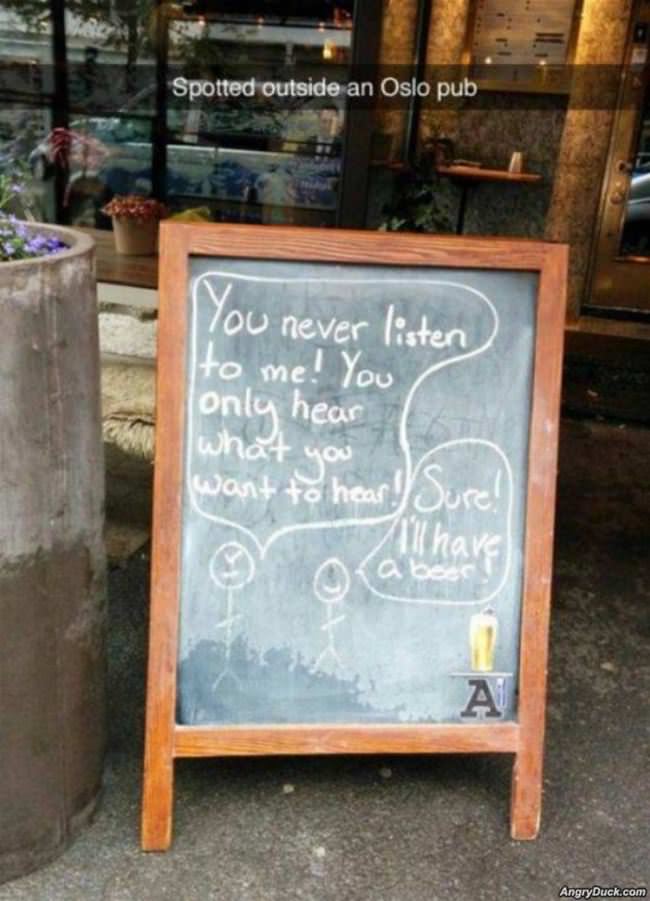 Spotted outside an Oslo pub
You never listen
to me! You
only hear
what you
want to hear!
Sure!
I'll have
a beer!
A
AngryDuck.com